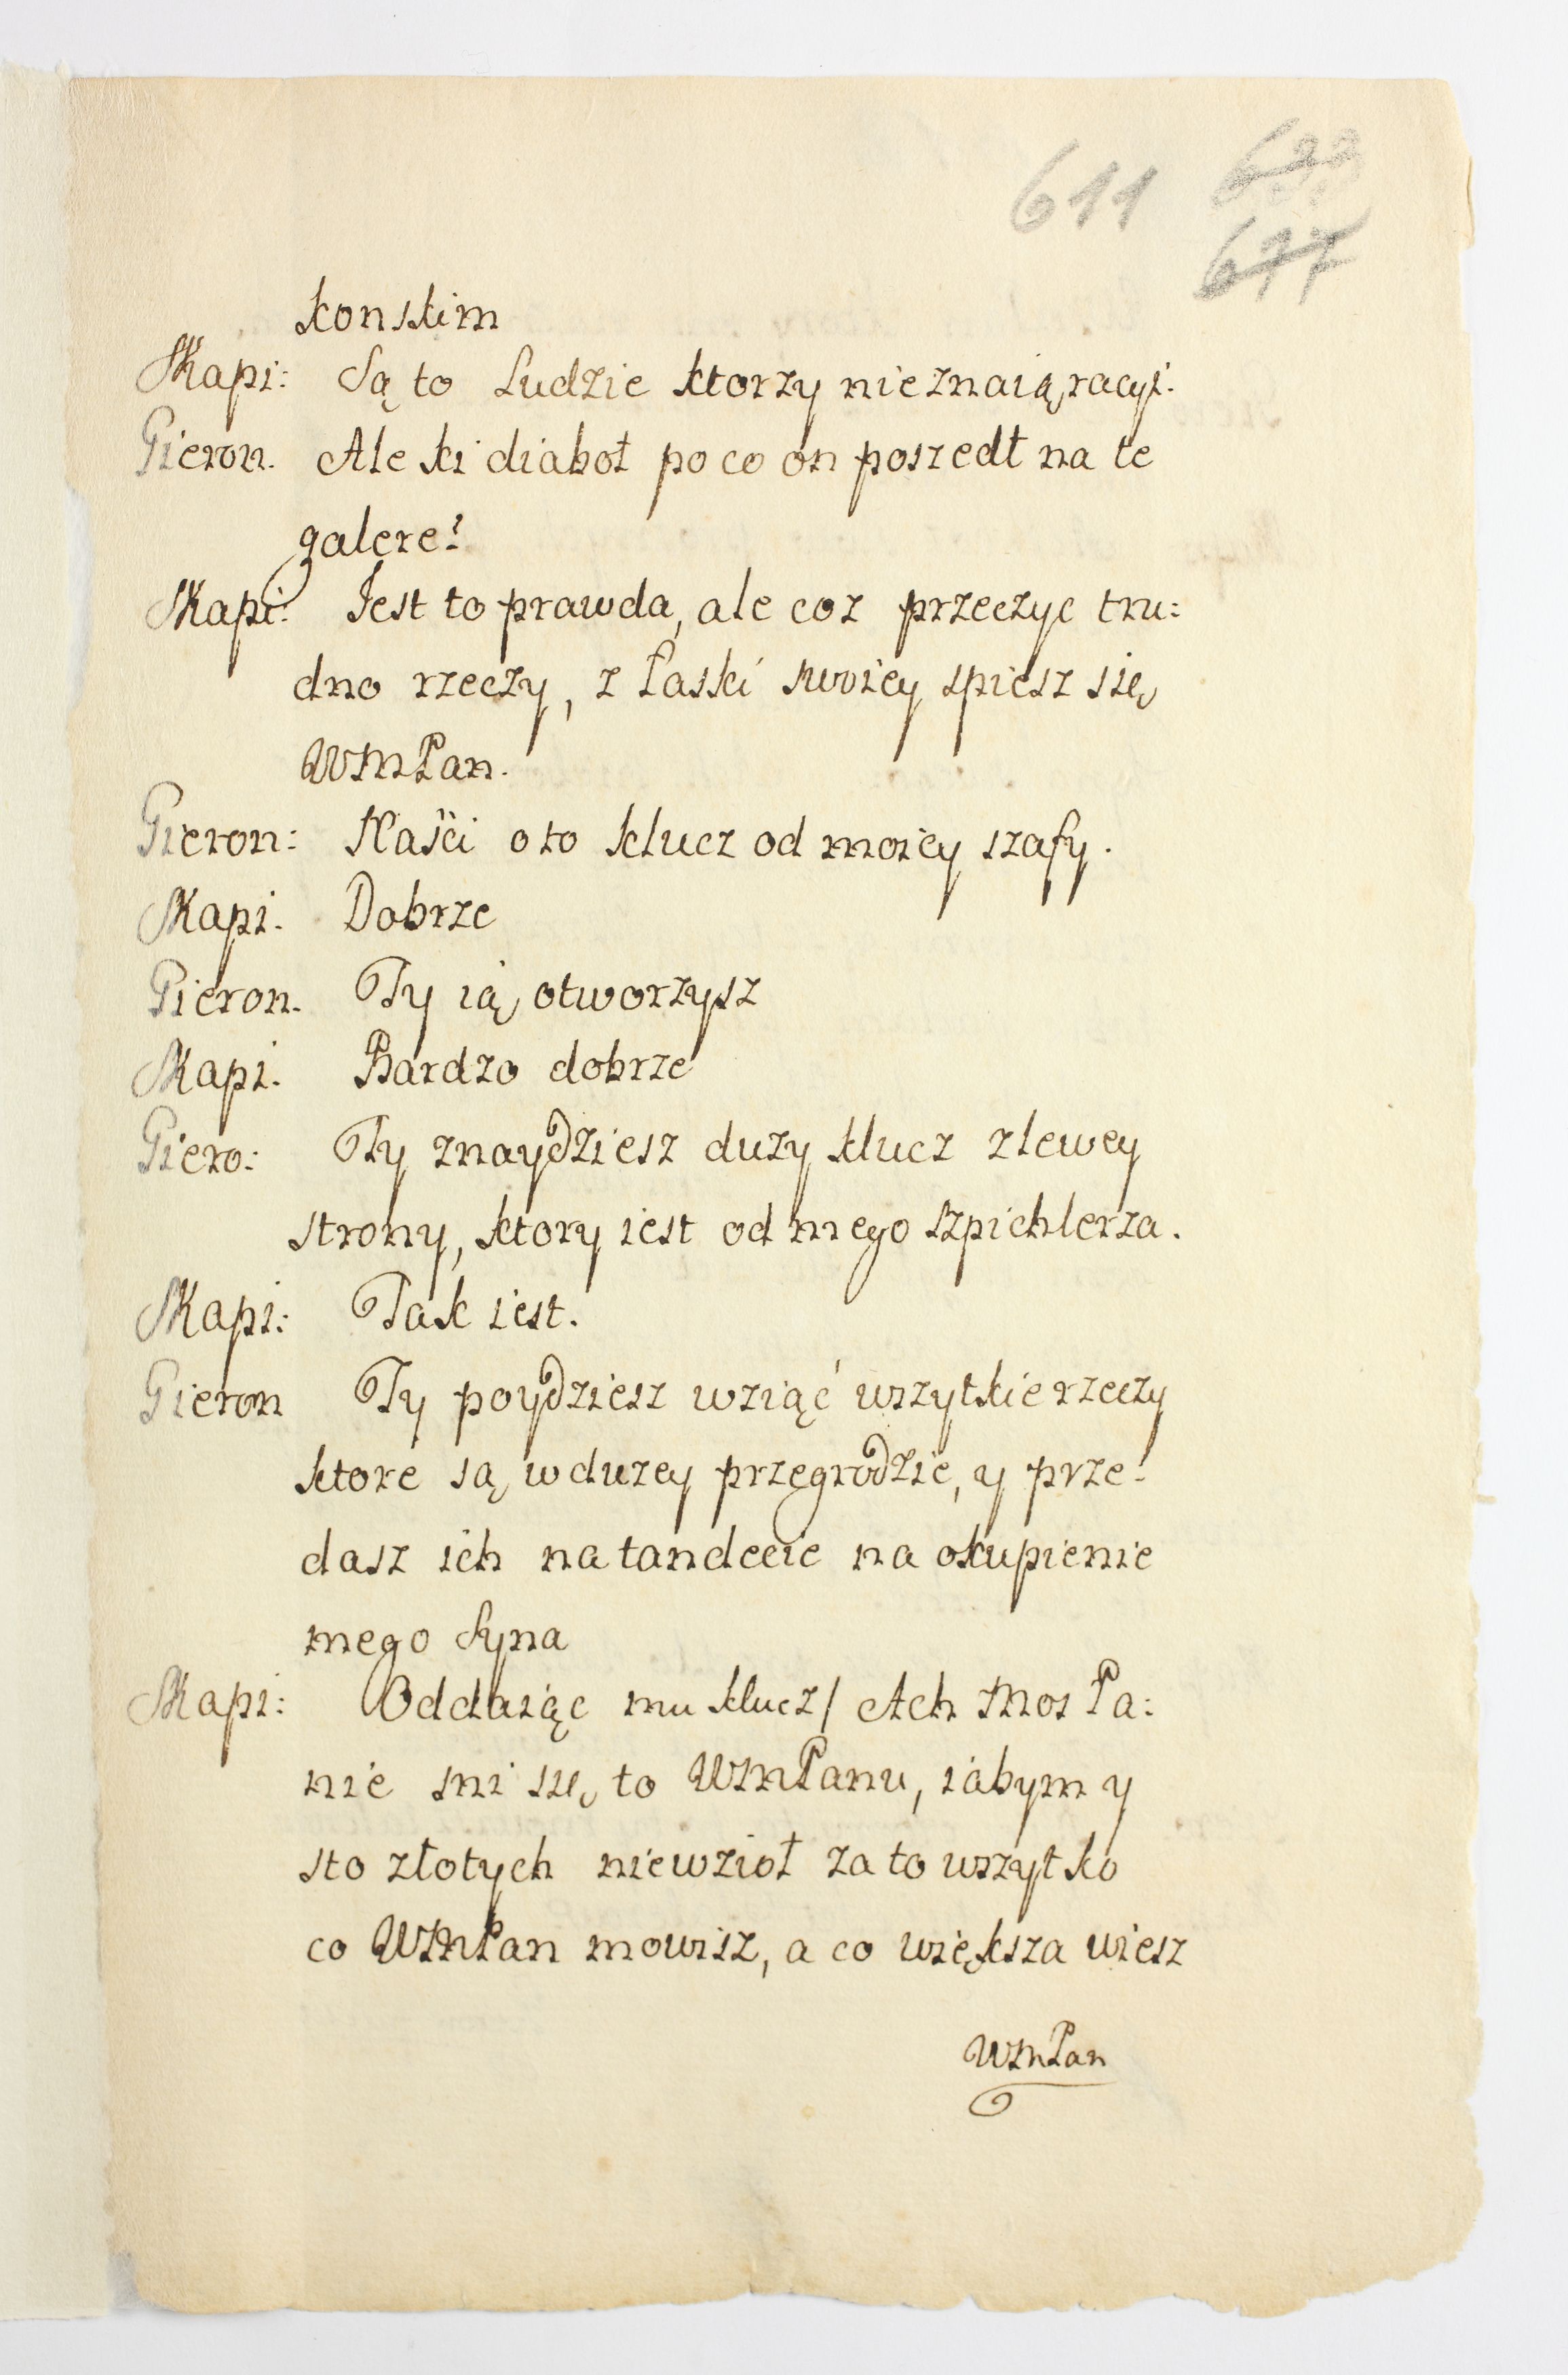 611
622
677
konskim
Skapi: Są to Ludzie ktorzy nieznaią racyi.
Gieron. Ale ki diaboł po co on poszedł na te
galere?
Skapi: Jest to prawda, ale coz przeczyc tru:
dno rzeczy, z Łaski swoiey spiesz się
WMPan.
Gieron: Naści oto klucz od moiey szafy.
Skapi. Dobrze
Gieron. Ty ią otworzysz
Skapi. Bardzo dobrze
Giero: Ty znaydziesz duzy klucz z lewey
strony, ktory iest od mego szpichlerza.
Skapi: Tak iest.
Gieron Ty poydziesz wziąć wszytkie rzeczy
ktore są w duzey przegrodzie, y prze-
dasz ich na tandecie na okupienie
mego Syna
Skapi: Oddaiąc mu klucz/ Ach Mos Pa:
nie sni się to WMPanu, iabym y
sto złotych niewzioł za to wszytko
co WMPan mowisz, a co większa wiesz
WMPan